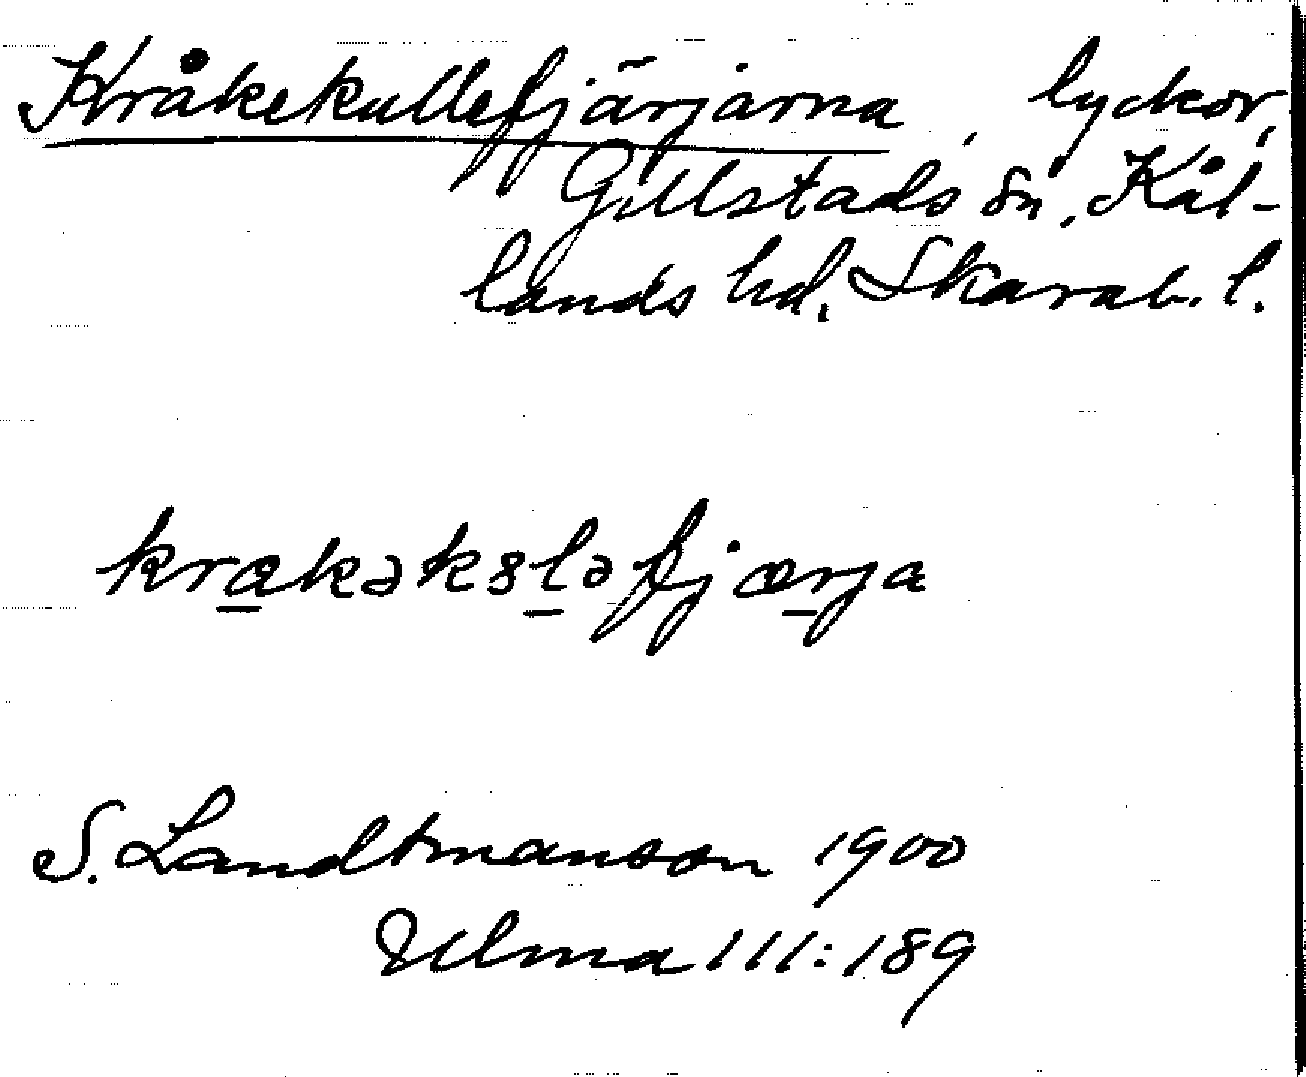 Kråkekullefjärjarna, lyckor,
Gillstads sn, Kål-
lands hd, Skarab. l.
krakəkȣləfjærja
S. Landtmanson 1900
Ulma 111:189